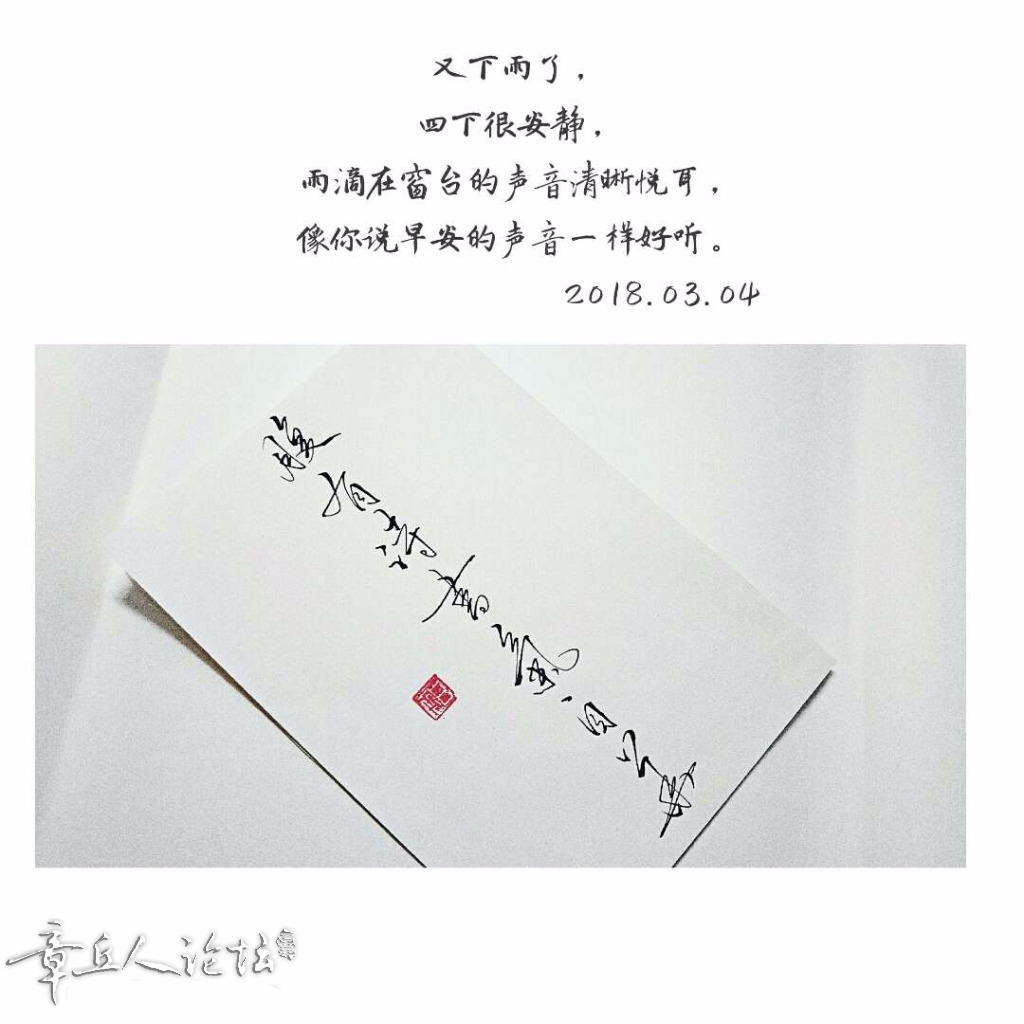 又下雨了，
四下很安静，
雨滴在窗台的声音清晰悦耳，
像你说早安的声音一样好听。
2018.03.04
腹有诗书气自华
章丘人论坛